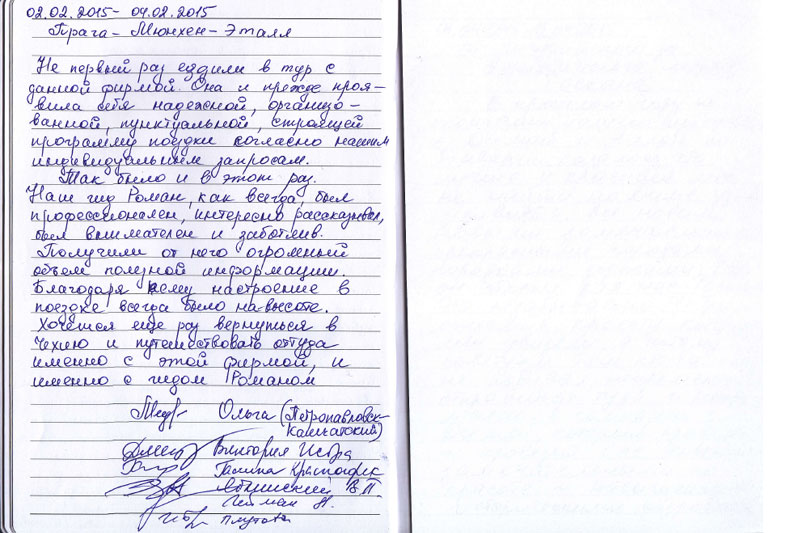 02.02.2015- 04.02.2015
Прага - Мюнхен - Эталл
Не первый раз ездили в тур с
данной фирмой. Она и прежде проя-
вила себя надежной, организо-
ванной, пунктуальной, строящей
программу поездки согласно нашим
индивидуальным запросам.
Так было и в этот раз.
Наш гид Роман, как всегда, был
профессионален, интересно рассказывал,
был внимателен и заботлив.
Получили от него огромный
объем полезной информации.
Благодаря ему настроение в
поездке всегда было на высоте.
Хочется еще раз вернуться в
Чехию и путешествовать оттуда
именно с этой фирмой, и
именно с гидом Романом
Ольга (Петропавловск-
Камчатский)
Виктория
Галина
В.П.